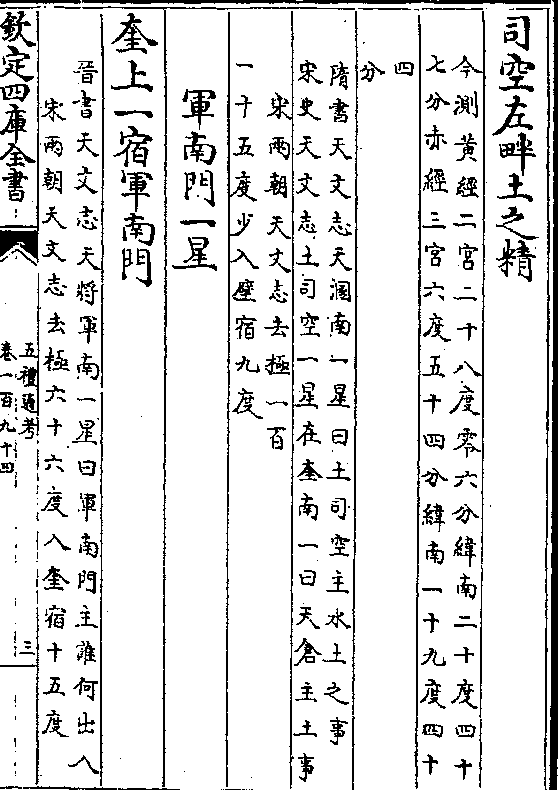 司空左畔土之精
今測黃經二宮二十八度零六分緯南二十度四十
七分赤經三宮六度五十四分緯南一十九度四十
四
分
隋書天文志天溷南一星曰土司空主水土之事
宋史天文志土司空一星在奎南一曰天倉主土事
宋兩朝天文志去極一百
一十五度少入壁宿九度
軍南門一星
奎上一宿軍南門
晉書天文志天將軍南一星曰軍南門主誰何出入
宋兩朝天文志去極六十六度入奎宿十五度
欽定四庫全書
五禮通考
卷一百九十四
三